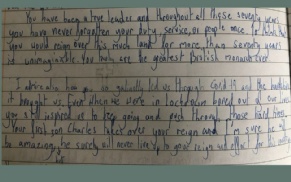 You have been a true leader and throughout all these seventy years
you have never forgotten your duty, service, or people once. To think that
you would reign over this much and for more than seventy years
is unimaginable. You are the greatest British monarch ever.
I admire how you led us through Covid 19 and the
it brought us, even when we were in lockdown bored out of our lives
you still inspired us to keep going and push through those hard times.
Your first son Charles takes over your reign and I'm sure he'll
be amazing, he surely will never live up to your reign and effort for this